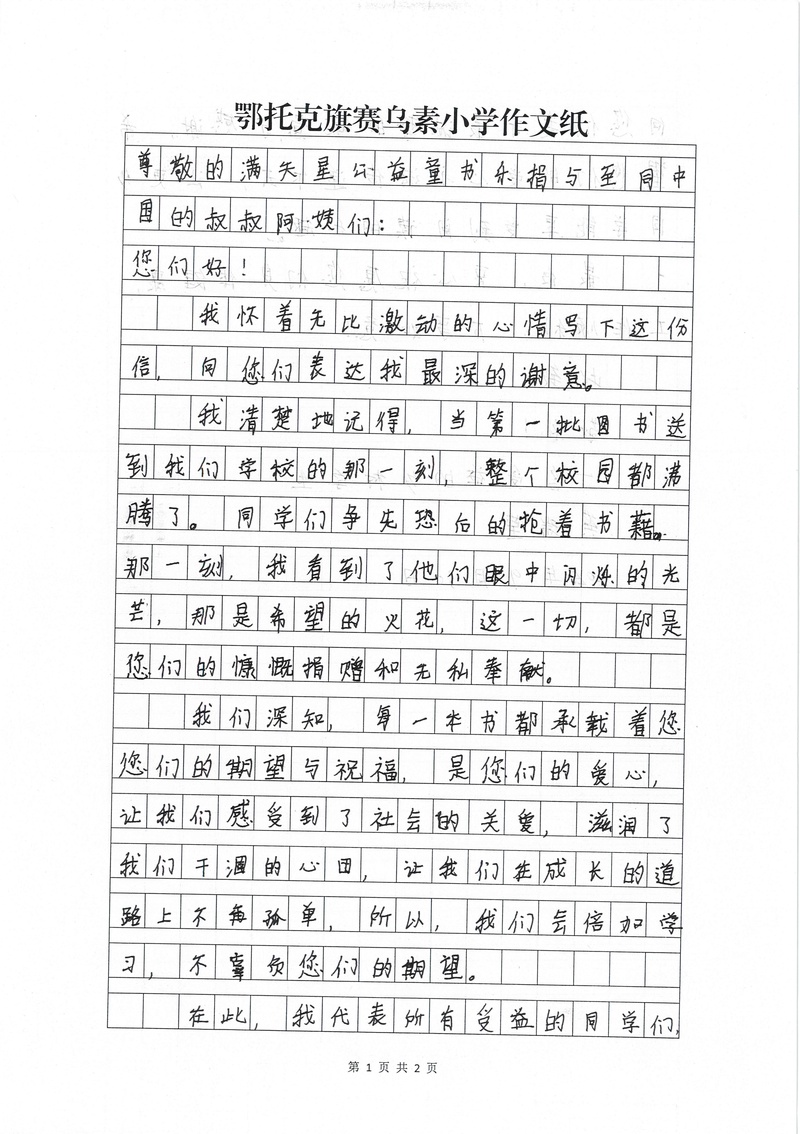 鄂托克旗赛乌素小学作文纸
尊敬的满天星公益童书乐捐与至同中
国的叔叔阿姨们：
您们好！
我怀着无比激动的心情写下这份
信，向您们表达我最深的谢意。
我清楚地记得，当第一批图书送
到我们学校的那一刻，整个校园都沸
腾了。同学们争先恐后的抢着书籍。
那一刻，我看到了他们眼中闪烁的光
芒，那是希望的火花，这一切，都是
您们的慷慨捐赠和无私奉献。
我们深知，每一本书都承载着您
您们的期望与祝福，是您们的爱心，
让我们感受到了社会的关爱，滋润了
我们干涸的心田，让我们在成长的道
路上不再孤单，所以，我们会倍加学
习，不辜负您们的期望。
在此，我代表所有受益的同学们，
第 1 页 共 2 页